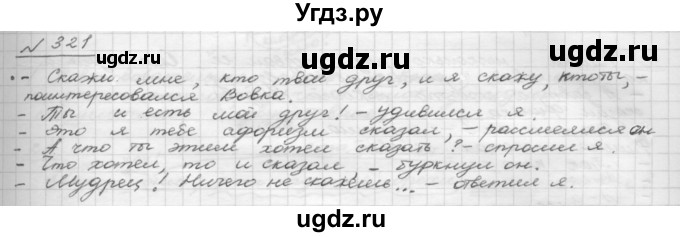 Угдз.ру
ugdz.ru ugdz.ru
№ 321
- Скажи мне, кто твой друг, и я скажу, кто ты, -
поинтересовался Вовка.
- Ты и есть мой друг! - удивился я.
- Это я тебе афоризм сказал, - рассмеялся он
- А что ты этим хотел сказать? - спросил я.
- Что хотел, то и сказал, - буркнул он.
- Мудрец! Ничего не скажешь... - ответил я.
ugdz.ru ugdz.ru
ugdz.ru
ugdz.ru ugdz.ru
ugdz.ru